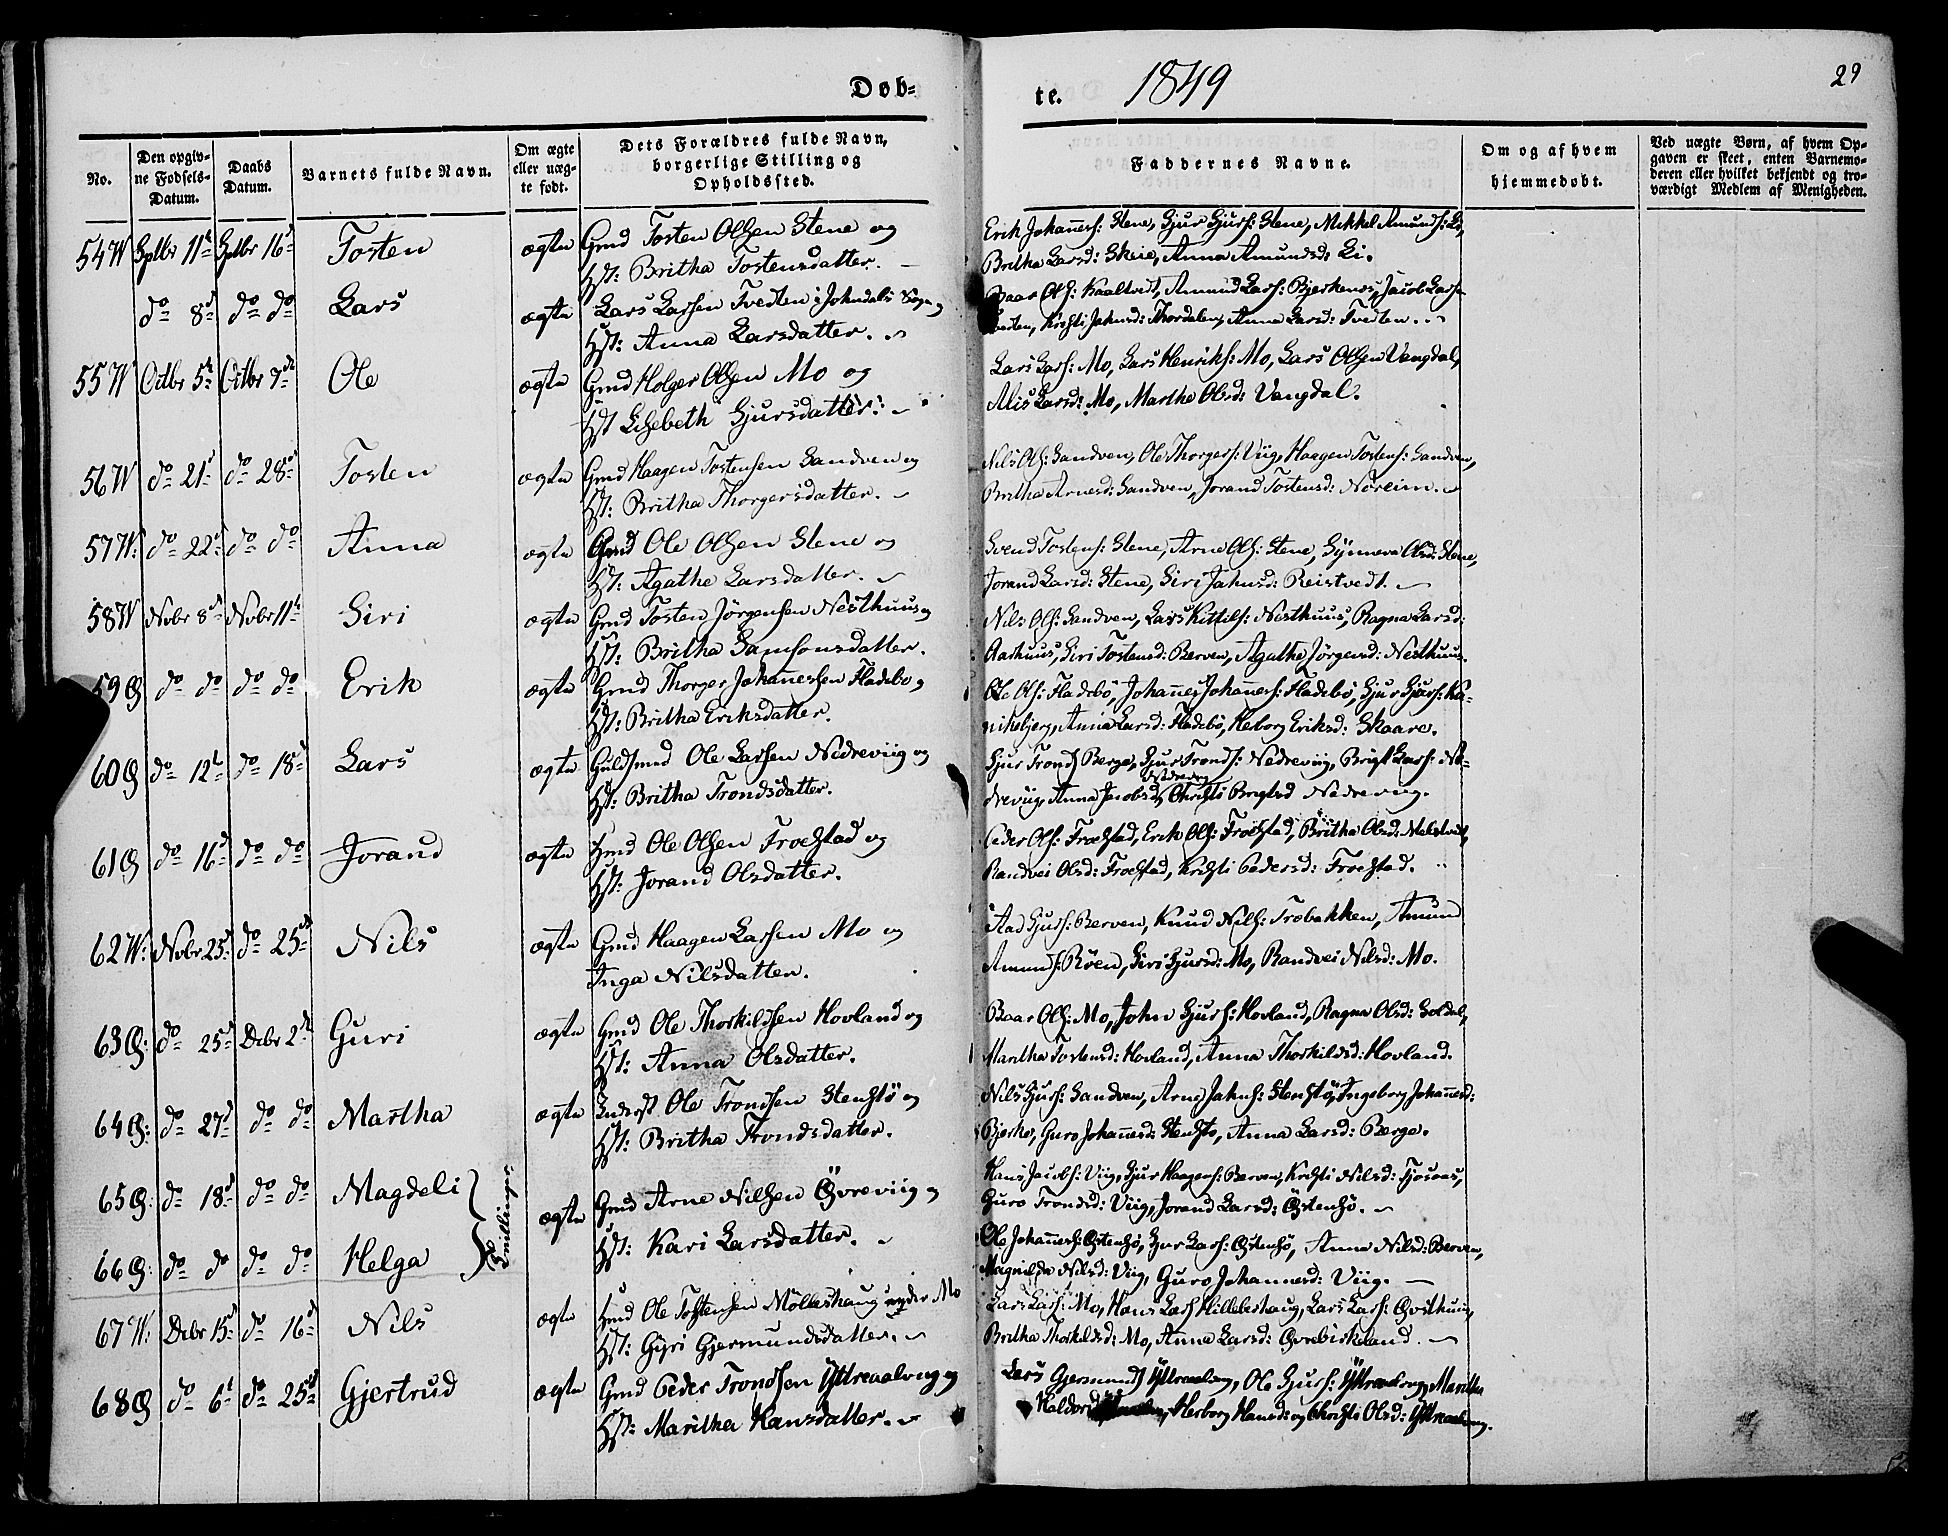 Døb-
te.
1849
29
No.
Den opgiv-
ne Fødsels-
Datum.
Daabs
Datum.
Barnets fulde Navn.
Om ægte
eller uæg-
te født.
Dets Forældres fulde Navn,
borgerlige Stilling og
Opholdssted.
Faddernes Navne.
Om og af hvem
hjemmedøbt.
Ved uægte Børn, af hvem Op-
gaven er skeet, enten Barnemo-
deren eller hvilket bekjendt og tro-
værdigt Medlem af Menigheden.
54 W Sptbr 11t Sptbr 16d Tosten ægte Gmd Tosten Olsen Stene og
Hst: Britha Tostensdatter.
Erik Johannes: Stene, Sjur Sjurs: Stene, Mikkel Amunds:
Britha Larsd: Skeie, Anna Amundsd: Li.
do 8d do do Lars ægte Lars Larsen Tvedten i Jondals Sogn og
Hst: Anna Larsdatter.
Baar Ols: Kaaltvedt, Amund Lars: Bjerkenes, Jacob Larsen
Tvedten, Kristi Jakusd: Thordalen, Anna Larsd: Tvedten.
55 W Octbr 5t Octbr 7de Ole ægte Gmd Holger Olsen Mo og
Hst Lisebeth Sjursdatter.
Lars Lars: Mo, Lars Henriks: Mo, Lars Olsen Vangdal,
Alis Larsd: Mo, Marthe Olsd: Vangdal.
56 W do 21d do 28de Tosten ægte Gmd Haagen Tostensen Sandven og
Hst: Britha Thorgersdatter.
Nils Ols: Sandven, Ole Thorgers: Viig, Haagen Tostens: Sandven,
Britha Arnesd: Sandven, Jorand Tostensd: Noreim.
57 W: do 22d do do Anna ægte Gmd Ole Olsen Stene og
Hst: Agathe Larsdatter.
Svend Tostens: Stene, Arne Ols: Stene, Synneva Olsd: Stene,
Jorand Larsd: Stene, Siri Jakusd: Reistvedt.
58 W Novbr 8d Novbr 11t Siri ægte Gmd Tosten Jörgensen Nesthuus og
Hst: Britha Samsonsdatter.
Nils Ols: Sandven, Lars Kittils: Nesthuus, Ragna Larsd:
Aarhuus, Siri Tostensd: Berven, Agathe Jörgensd: Nesthuus.
59 Ø do do do do Erik ægte Gmd Thorger Johannessen Fladebø og
Hst: Britha Eriksdatter.
Ole Ols: Fladebö, Johannes Johannes: Fladebö, Sjur Sjurs: Ka-
nikebjerg, Anna Larsd: Fladebö, Herborg Eriksd: Skaare.
60 Ø do 12t do 18d Lars ægte Guldsmed Ole Larsen Nedreviig og
Hst: Britha Trondsdatter.
Sjur Tronds Berge, Sjur Tronds: Nedreviig, Brigt Lars: Ne-
dreviig, Anna Jacobsd Nedreviig, Christi Brigtsd Nedreviig.
61 Ø do 16d do do Jorand ægte Hmd Ole Olsen Froestad og
Hst: Jorand Olsdatter.
Peder Ols: Froestad, Erik Ols: Froestad, Britha Olsd:
Randvei Olsd: Froestad, Kristi Pedersd: Froestad.
62 W: Novbr 23d do 25de Nils ægte Gmd Haagen Larsen Mo og
Inga Nilsdatter.
Aad Sjurs: Berven, Knud Nils: Trobakken, Amund
Amunds: Röen, Siri Sjursd: Mo, Randvei Nilsd: Mo.
63 Ø: do 25d Decbr 2d Guri ægte Gmd Ole Thorkildsen Hovland og
Hst: Anna Olsdatter.
Baar Ols: Mo, John Sjurs: Hovland, Ragna Olsd: Soldal,
Martha Tostensd: Hovland, Anna Thorkildsd: Hovland.
64 Ø: do 27d do do Martha ægte Inderst Ole Trondsen Stenstö og
Hst: Britha Trondsdatter.
Nils Sjurs: Sandven, Arne Jakus: Stenstö, Ingeborg Johannesd:
Bjerke, Guro Johannesd: Stenstø, Anna Larsd: Berge.
65 Ø: do 18d do do Magdeli
Tvillinger.
ægte Gmd Arne Nilsen Øvreviig og
Hst: Kari Larsdatter.
Hans Jacobs: Viig, Sjur Haagens: Berven, Kristi Nilsd:
Guro Trondsd: Viig, Jorand Larsd: Østensø.
66 Ø: do do do do Helga
Ole Johannes: Østensø, Sjur Lars: Østensø, Anna Nilsd: Berven,
Magnilde Nilsd: Viig, Guro Johannesd: Viig.
67 W: Decbr 15d do 16d Nils ægte Hmd Ole Tostensen Möllershaug under Mo
Hst: Gyri Gjermundsdatter.
Lars Lars: Mo, Hans Lars Hilleshaug, Lars Lars:
Britha Thorkildsd: Mo, Anna Larsd: Øvrebirkeland.
68 Ø do 6t do 25de Gjertrud ægte Gmd Peder Trondsen Yttreaalvig og
Hst: Maritha Hansdatter.
Lars Gjermunds Yttreaalvig, Ole Sjurs: Yttreaalvig, Maritha
Haldorsd, Herborg Hansd: og Christi Olsd: Yttreaalvig.